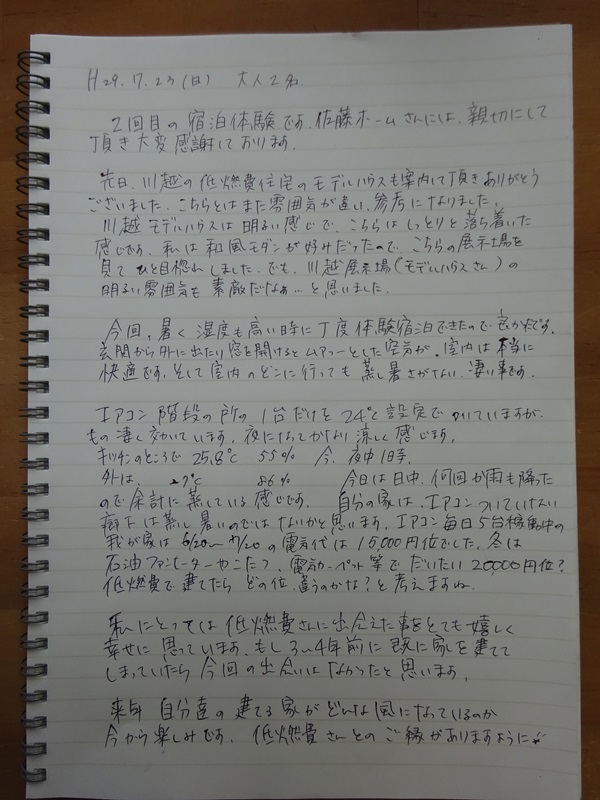 H29.7.23(日) 大人2名.
2回目の宿泊体験です.佐藤ホームさんには、親切にして
頂き大変感謝しております.
先日、川越の低燃費住宅のモデルハウスも案内して頂きありがとう
ございました.こちらとはまた雰囲気が違い、参考になりました.
川越モデルハウスは明るい感じで、こちらはしっとりと落ち着いた
感じです.私は和風モダンが好みだったので、こちらの展示場を
見てひと目惚れしました.でも、川越展示場(モデルハウスさん)の
明るい雰囲気も素敵だなぁ…と思いました.
今回、暑く湿度も高い時に丁度体験宿泊できたので良かったです.
玄関から外に出たり窓を開けるとムアァーとした空気が.室内は本当に
快適です.そして室内のどこに行っても蒸し暑さがない.凄い事です.
エアコン階段の所の1台だけを24℃設定でついていますが、
もの凄く効いています.夜になってかなり涼しく感じます.
キッチンのところで 25.8℃ 55% 今、夜中1時.
外は、 27℃ 86% 今日は日中、何回か雨も降った
ので余計に蒸している感じです. 自分の家は、エアコンついていない
廊下は蒸し暑いのではないかと思います.エアコン毎日5台稼働中の
我が家は6/20~7/20の電気代は15,000円位でした.冬は
石油ファンヒーターやこたつ、電動カーペット等でだいたい20,000円位?
低燃費で建てたらどの位、違うのかな?と考えますね.
私にとっては低燃費さんに出会えた事をとても嬉しく
幸せに思っています.もし3~4年前に既に家を建てて
しまっていたら今回の出会いはなかったと思います.
来年自分達の建てる家がどんな風になっているのか
今から楽しみです.低燃費さんとのご縁がありますように